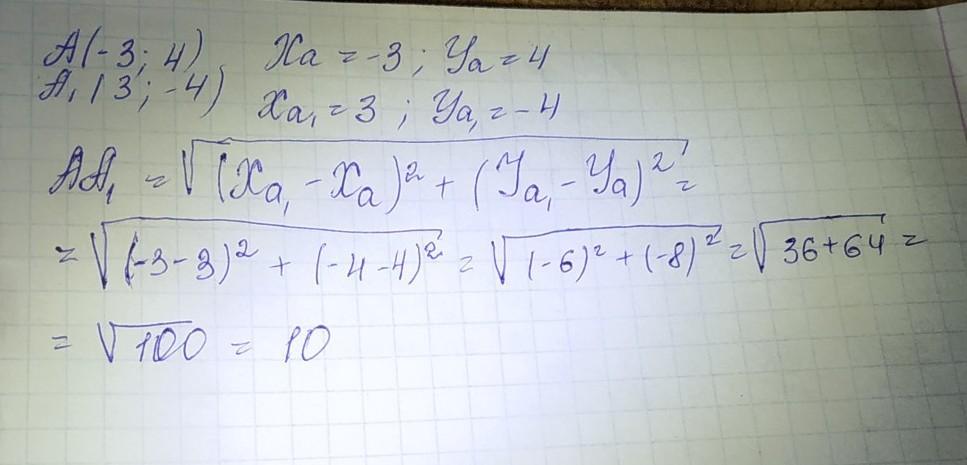 A(-3; 4) Xa = -3; Ya = 4
A₁(3; -4) Xa₁ = 3; Ya₁ = -4
AA₁ = √((Xa₁ - Xa)² + (Ya₁ - Ya)²) =
= √((-3-3)² + (-4-4)²) = √((-6)² + (-8)²) = √(36+64) =
= √100 = 10